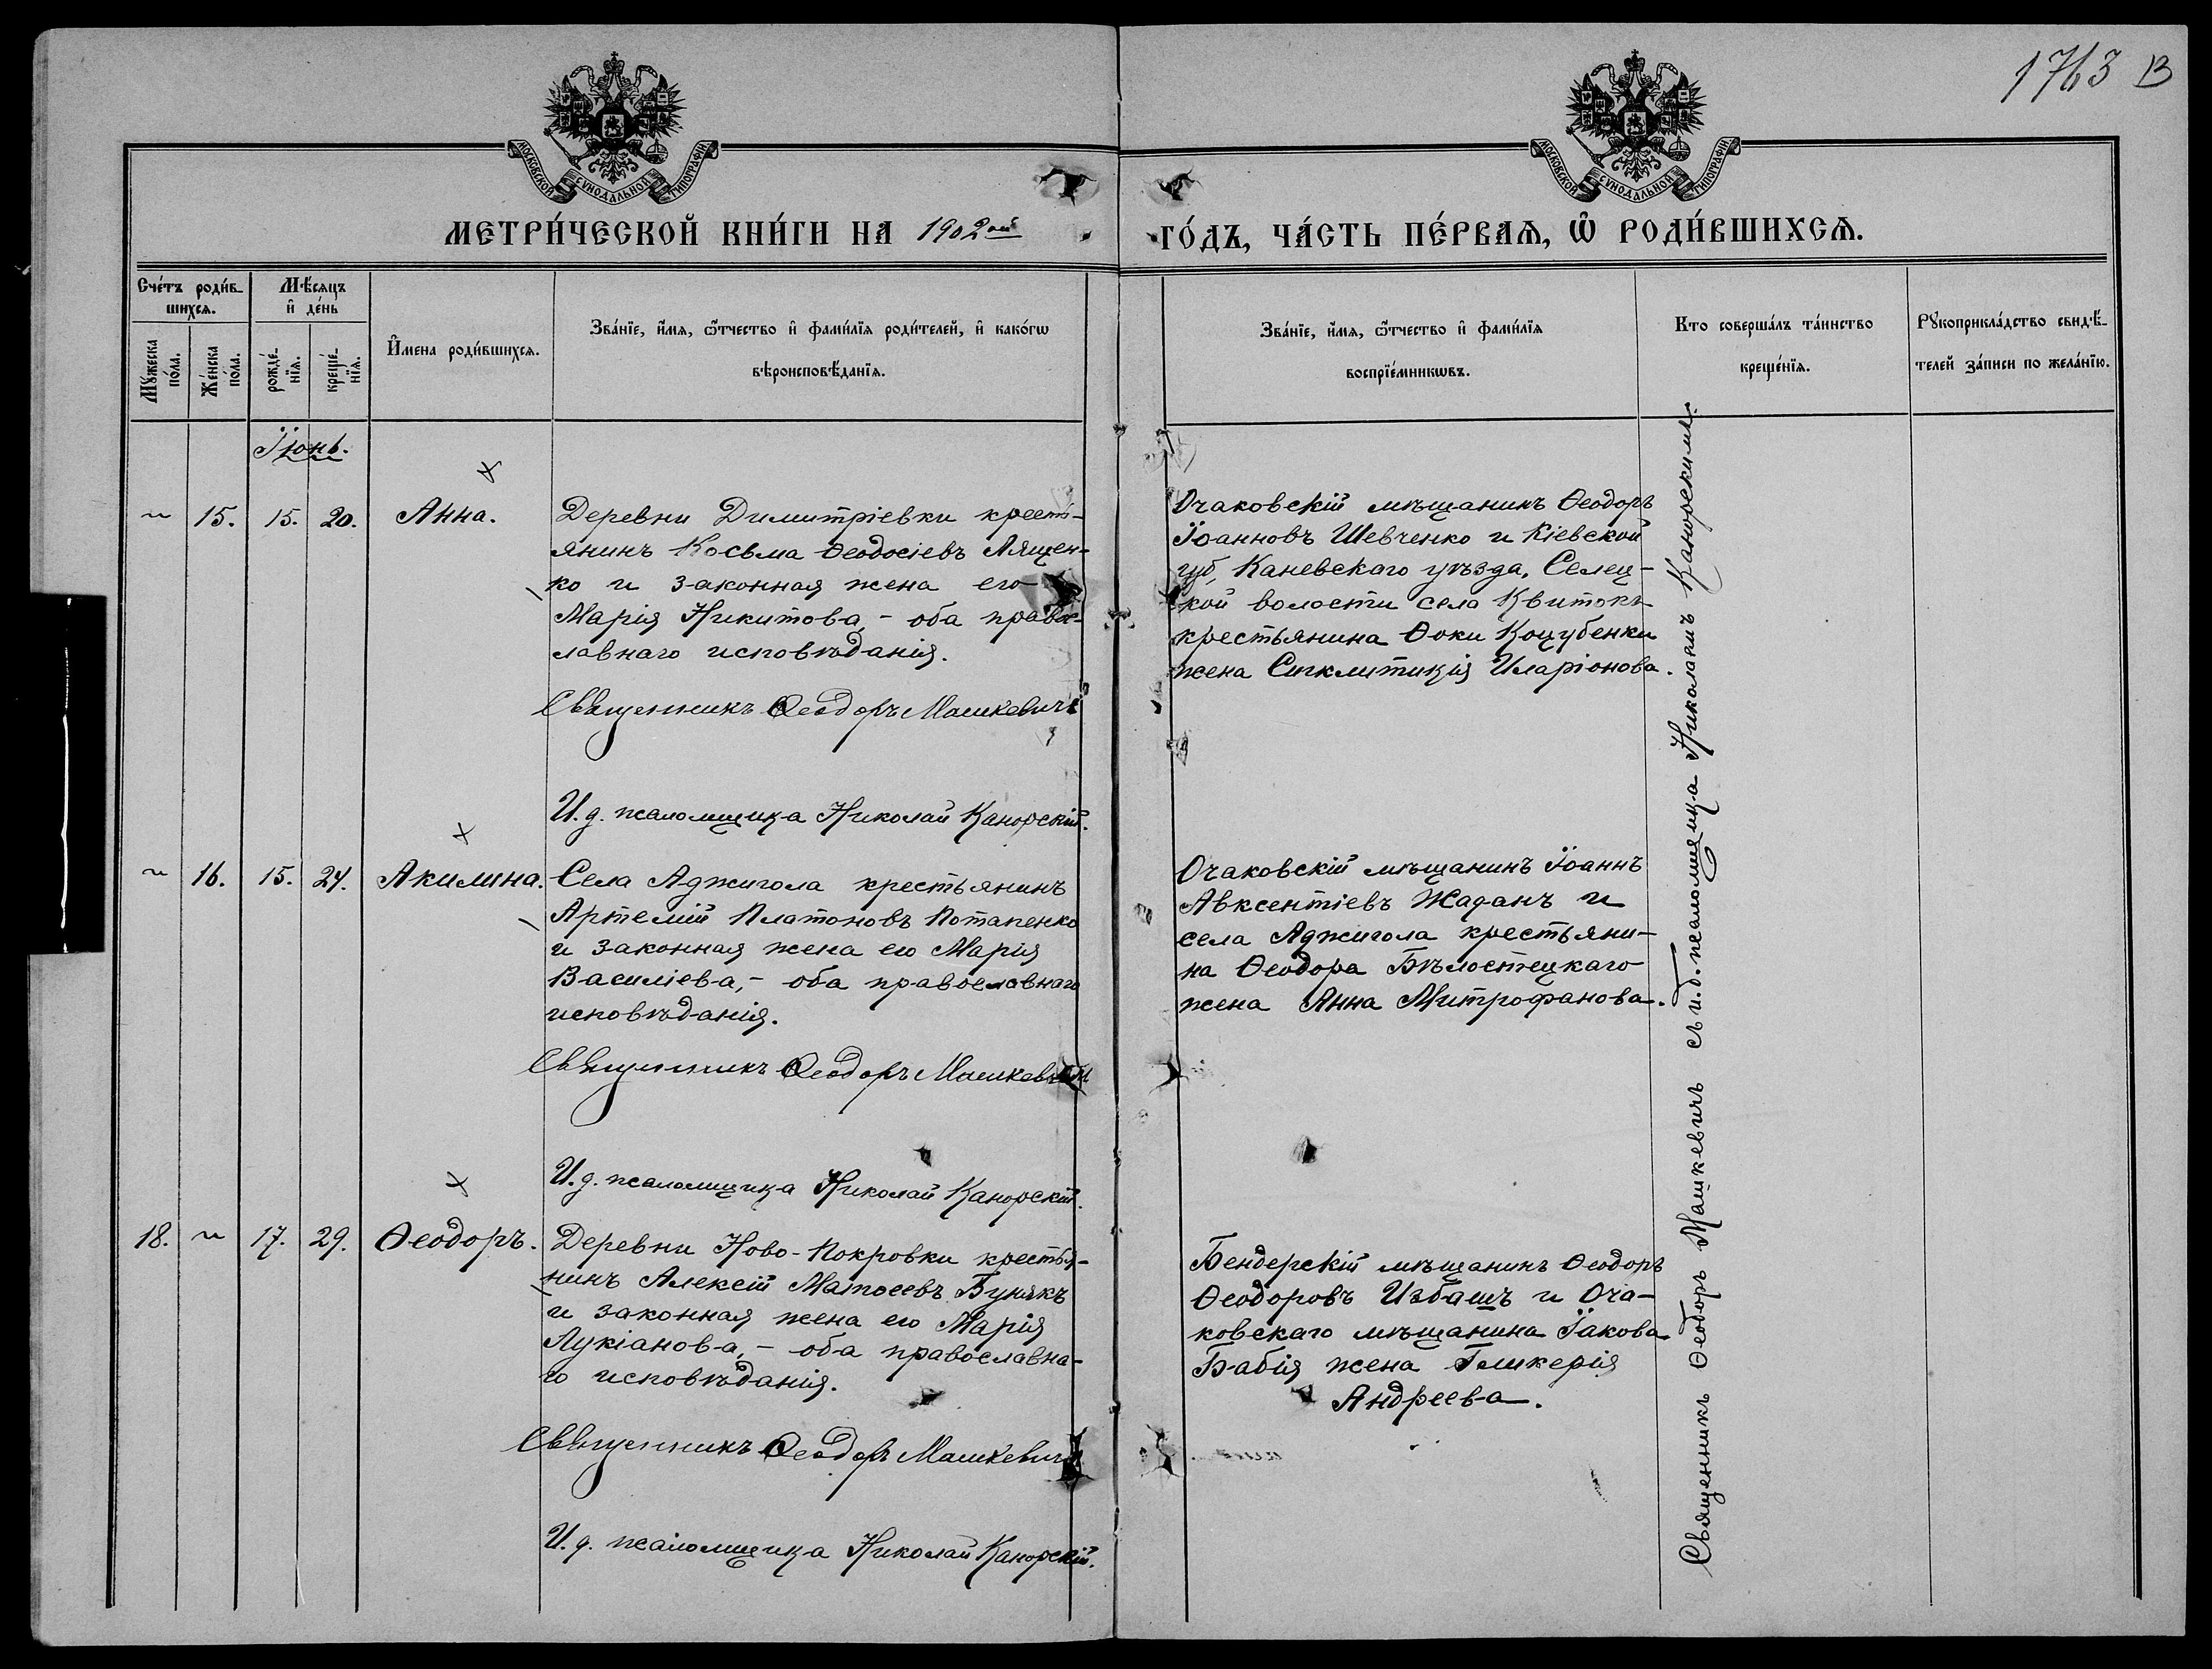 1763 В
МОСКОВСКОЙ СѴНОДАЛЬНОЙ ТИПОГРАФІИ
МОСКОВСКОЙ СѴНОДАЛЬНОЙ ТИПОГРАФІИ
МЕТРИ́ЧЕСКОЙ КНИ́ГИ НА 1902ой ГО́ДЪ, ЧА́СТЬ ПЕ́РВАѦ, Ѡ҆ РОДИ́ВШИХСѦ.
Сче́тъ роди́в-
шихсѧ.
Мꙋ́жеска
по́ла.
Же́нска
по́ла.
Мѣ́сѧцъ
и҆ де́нь
рожде́-
нїѧ.
креще́-
нїѧ.
И҆мена роди́вшихсѧ.
Зва́нїе, и҆́мѧ, ѻ҆́тчество и҆ фами́лїѧ роди́телей, и҆ како́гѡ
вѣроисповѣ́данїѧ.
Зва́нїе, и҆́мѧ, ѻ҆́тчество и҆ фами́лїѧ
воспрїе́мникѡвъ.
Кто соверша́лъ та́инство
креще́нїѧ.
Рꙋкоприкла́дство свидѣ́-
телей за́писи по жела́нїю.
Їюнь.
~ 15. 15. 20. Анна.
Деревни Димитріевки кресть-
янинъ Косьма Ѳеодосіевъ Лящен-
ко и законная жена его
Марія Никитова, - оба право-
славнаго исповѣданія.
Священникъ Ѳеодоръ Машкевичъ
И. д. псаломщика Николай Канорскій.
Очаковскій мѣщанинъ Ѳеодоръ
Їоанновъ Шевченко и Кіевской
губ, Каневскаго уѣзда, Селец-
кой волости села Квитокъ
крестьянина Ѳоки Коцубенки
жена Сигклитикія Иларіонова.
~ 16. 15. 24. Акилина.
Села Аджигола крестьянинъ
Артемій Платоновъ Потапенко
и законная жена его Марія
Василіева, - оба православнаго
исповѣданія.
Священникъ Ѳеодоръ Машкевичъ
И. д. псаломщика Николай Канорскій.
Очаковскій мѣщанинъ Їоаннъ
Авксентіевъ Жаданъ и
села Аджигола крестьяни-
на Ѳеодора Бѣлостецкаго
жена Анна Митрофанова.
18. ~ 17. 29. Ѳеодоръ.
Деревни Ново-Покровки крестья-
нинъ Алексій Матѳеевъ Бунякъ
и законная жена его Марія
Лукіанова, - оба православна-
го исповѣданія.
Священникъ Ѳеодоръ Машкевичъ
И. д. псаломщика Николай Канорскій.
Бендерскій мѣщанинъ Ѳеодоръ
Ѳеодоровъ Избашъ и Оча-
ковскаго мѣщанина Їакова
Бабія жена Гликерія
Андреева.
Священникъ Ѳеодоръ Машкевичъ съ и. д. псаломщика Николаемъ Канорскимъ.